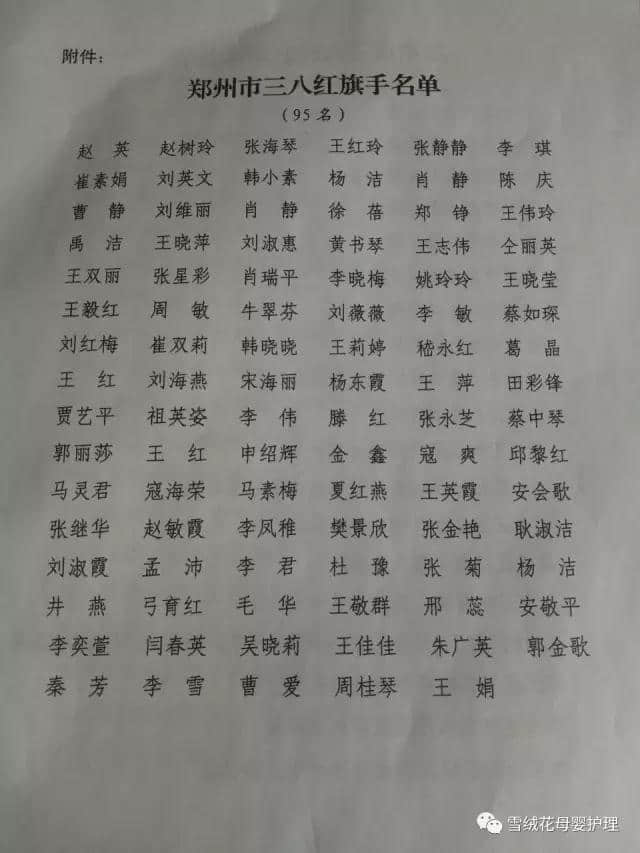 附件：
郑州市三八红旗手名单
（95名）
赵 英 赵树玲 张海琴 王红玲 张静静 李 琪
崔素娟 刘英文 韩小素 杨 洁 肖 静 陈 庆
曹 静 刘维丽 肖 静 徐 蓓 郑 铮 王伟玲
禹 洁 王晓萍 刘淑惠 黄书琴 王志伟 仝丽英
王双丽 张星彩 肖瑞平 李晓梅 姚玲玲 王晓莹
王毅红 周 敏 牛翠芬 刘薇薇 李 敏 蔡如琛
刘红梅 崔双莉 韩晓晓 王莉婷 嵇永红 葛 晶
王 红 刘海燕 宋海丽 杨东霞 王 萍 田彩锋
贾艺平 祖英姿 李 伟 滕 红 张永芝 蔡中琴
郭丽莎 王 红 申绍辉 金 鑫 寇 爽 邱黎红
马灵君 寇海荣 马素梅 夏红燕 王英霞 安会歌
张继华 赵敏霞 李凤稚 樊景欣 张金艳 耿淑洁
刘淑霞 孟 沛 李 君 杜 豫 张 菊 杨 洁
井 燕 弓育红 毛 华 王敬群 邢 蕊 安敬平
李奕萱 闫春英 吴晓莉 王佳佳 朱广英 郭金歌
秦 芳 李 雪 曹 爱 周桂琴 王 娟
雪绒花母婴护理